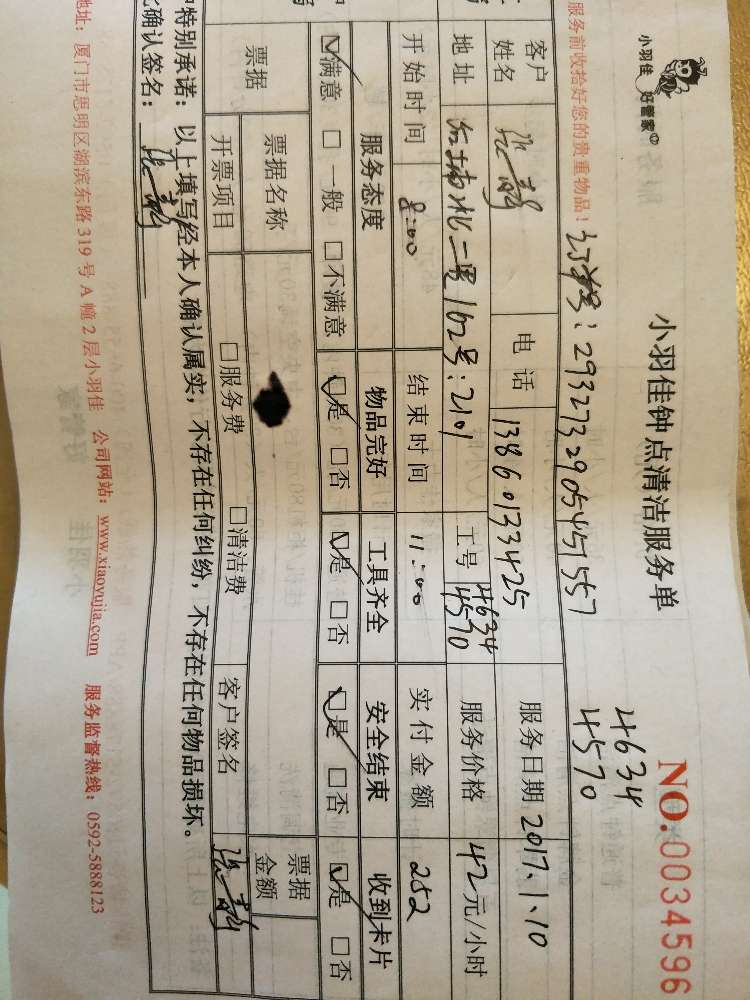 小羽佳 好管家
小羽佳钟点清洁服务单
NO.0034596
服务前收拾好您的贵重物品!
订单号:2932732905451557
4634
4570
客户姓名 电话 13860133425 服务日期 2017.1.10
地址 162号:2101 工号 4634 4570 服务价格 42元/小时
开始时间 8:00 结束时间 11:00 实付金额 252
服务态度 物品完好 工具齐全 安全结束 收到卡片
☑满意 □一般 □不满意 ☑是 □否 ☑是 □否 ☑是 □否 ☑是 □否
票据 票据名称 票据金额
开票项目 □服务费 □清洁费 客户签名
特别承诺:以上填写经本人确认属实,不存在任何纠纷,不存在任何物品损坏。
确认签名:
地址:厦门市思明区湖滨东路319号A幢2层小羽佳 公司网站:www.xiaoyujia.com 服务监督热线:0592-5888123